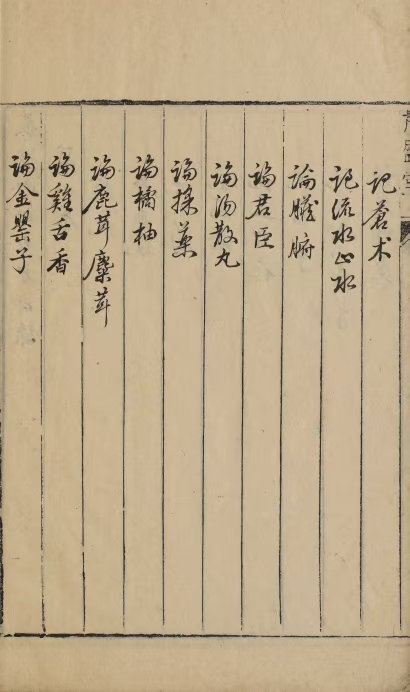 記蒼术
記流水止水
論臟腑
論君臣
論湯散丸
論採藥
論橘柚
論鹿茸麋茸
論雞舌香
論金罌子